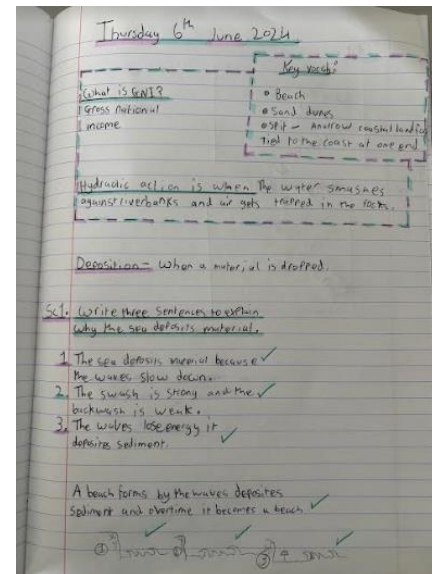 Thursday 6th June 2024
What is GNI?
Gross national
income
Key vocab:
• Beach
• Sand dunes
• Spit – A narrow coastal land
tied to the coast at one end
Hydraulic action is when the water smashes
against riverbanks and air gets trapped in the rocks.
Deposition – When a material is dropped.
Sc1. Write three sentences to explain
why the sea deposits material.
1 The sea deposits material because
the waves slow down.
2. The swash is strong and the
backwash is weak.
3. The waves lose energy it
deposites sediment.
A beach forms by the waves deposites
sediment and overtime it becomes a beach
① ② ③